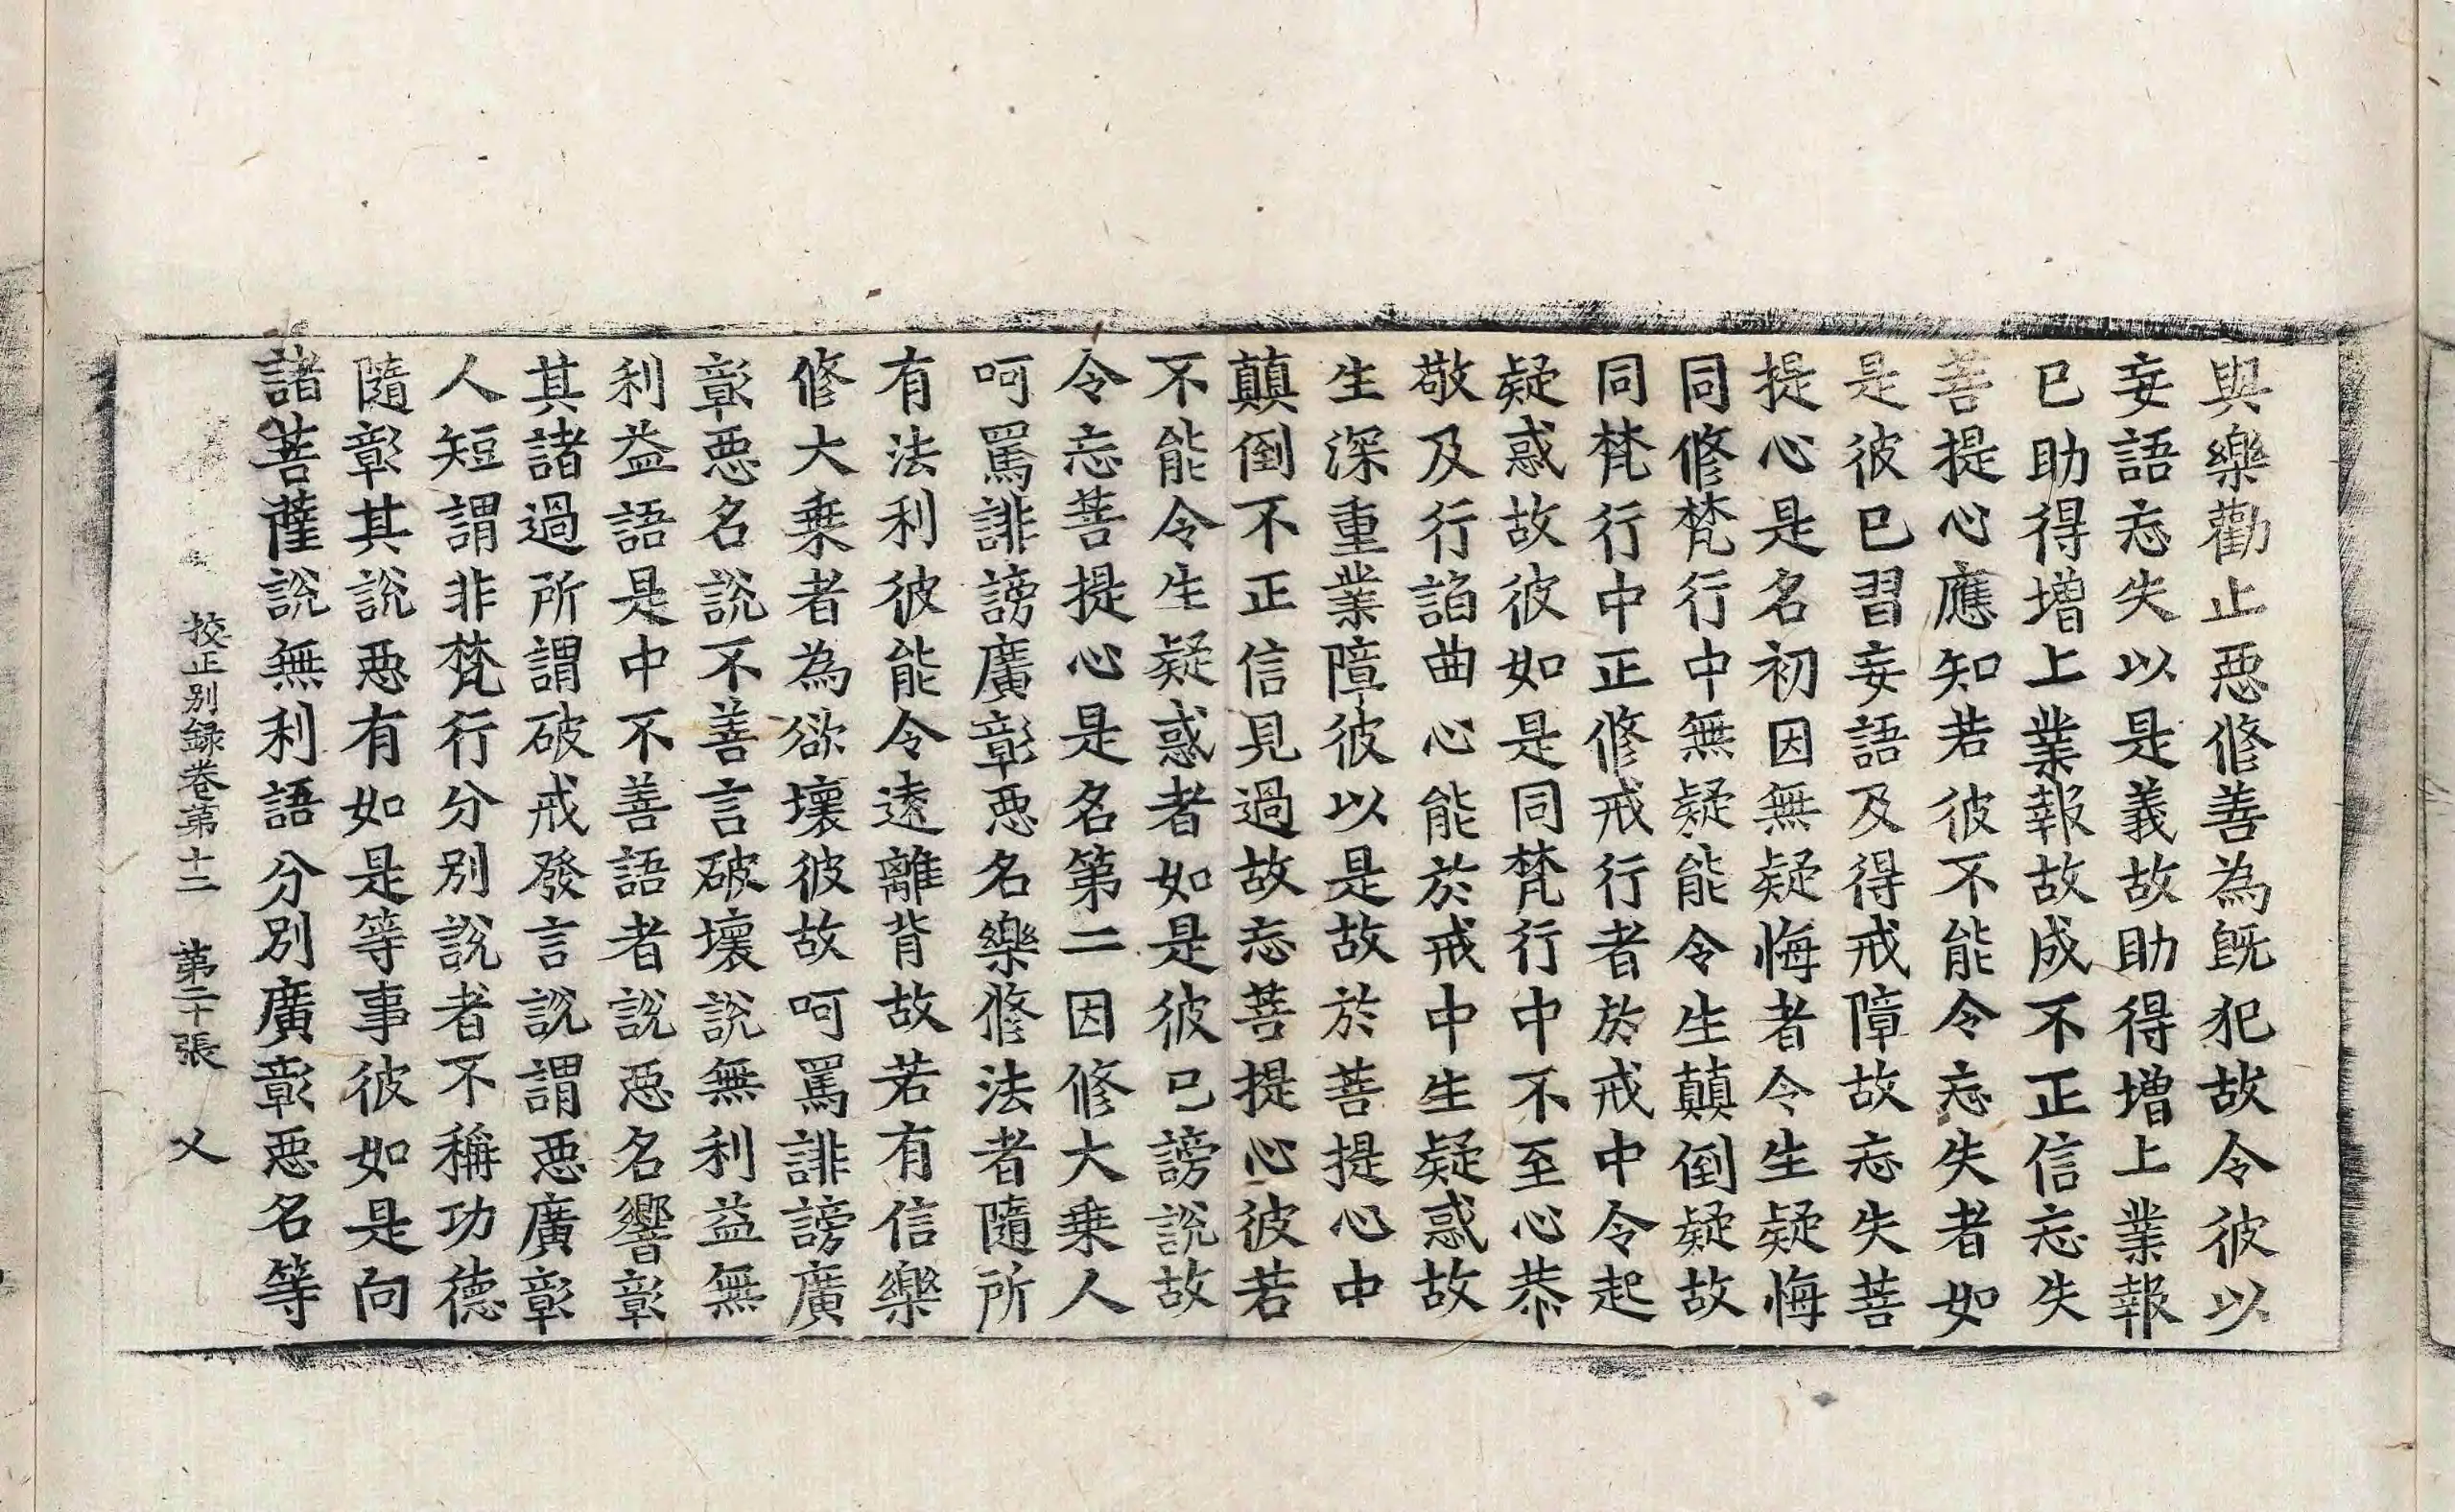 與樂勸止惡修善為既犯故令彼以
妄語忘失以是義故助得增上業報
已助得增上業報故成不正信忘失
菩提心應知若彼不能令忘失者如
是彼已習妄語及得戒障故忘失菩
提心是名初因無疑悔者令生疑悔
同修梵行中無疑能令生顛倒疑故
同梵行中正修戒行者於戒中令起
疑惑故彼如是同梵行中不至心恭
敬及行諂曲心能於戒中生疑惑故
生深重業障彼以是故於菩提心中
顛倒不正信見過故忘菩提心彼若
不能令生疑惑者如是彼已謗說故
令忘菩提心是名第二因修大乗人
呵罵誹謗廣彰惡名樂修法者隨所
有法利彼能令遠離背故若有信樂
修大乗者為欲壞彼故呵罵誹謗廣
彰惡名說不善言破壞說無利益無
利益語是中不善語者說惡名響彰
其諸過所謂破戒發言說謂惡廣彰
人短謂非梵行分別說者不稱功德
隨彰其說惡有如是等事彼如是向
諸菩薩說無利語分別廣彰惡名等
校正別録卷第十二　第二十張　乂